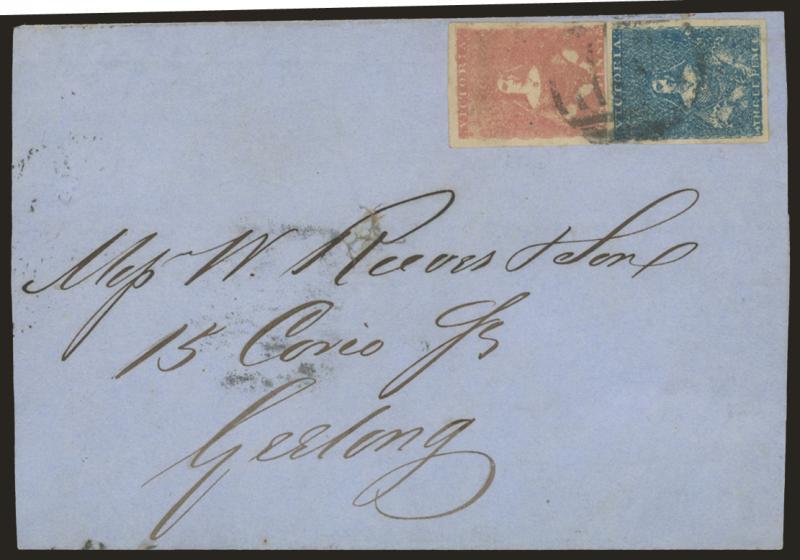 VICTORIA
VICTORIA THREE PENCE
Mess W. Reeves & Son
15 Corio St
Geelong